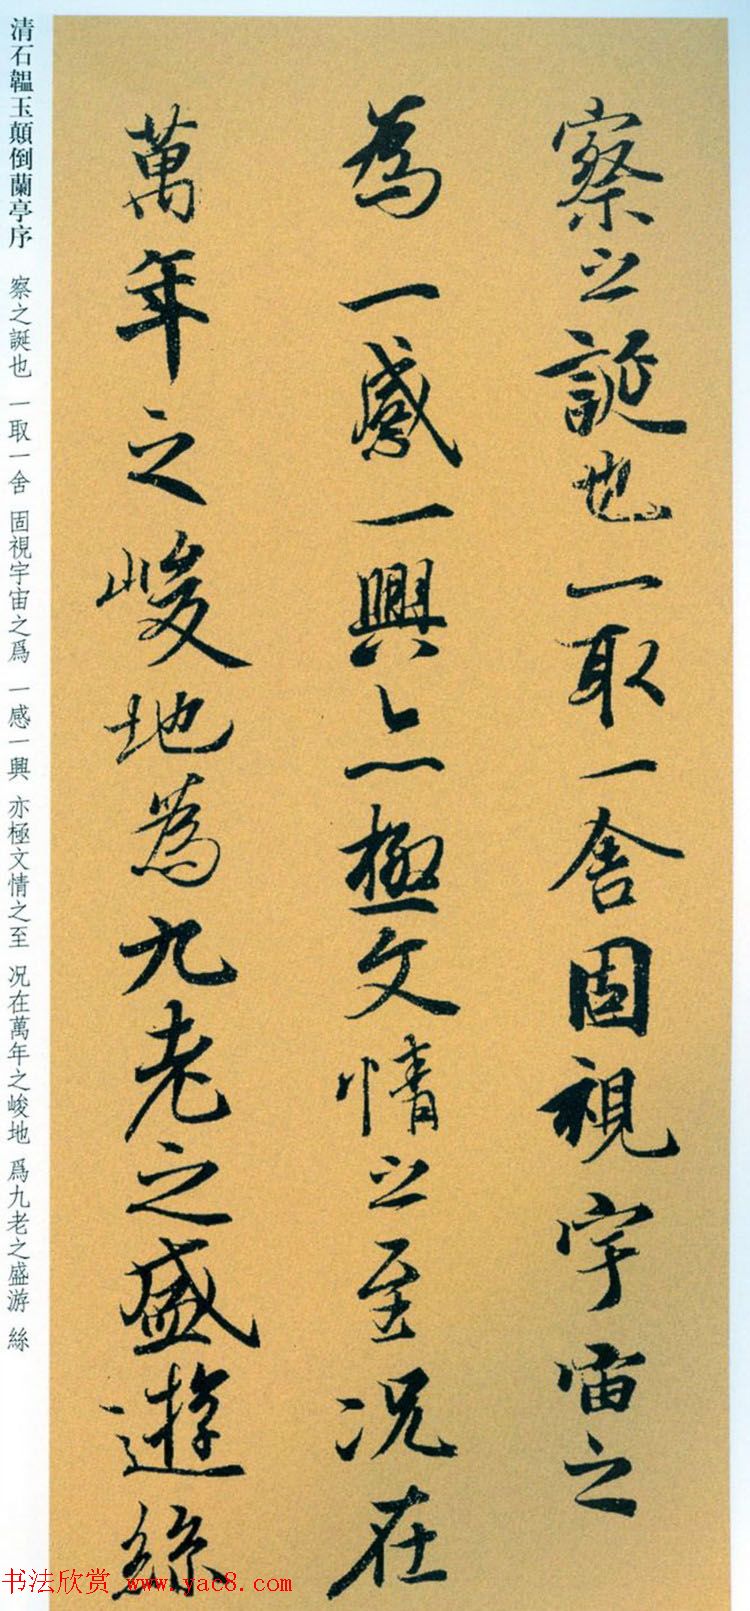 察之誕也一取一舍固視宇宙之
為一感一興亦極文情之至況在
萬年之峻地為九老之盛遊絲
清石韞玉顛倒蘭亭序 察之誕也 一取一舍 固視宇宙之爲 一感一興 亦極文情之至 况在萬年之峻地 爲九老之盛游 絲
书法欣赏 www.yac8.com